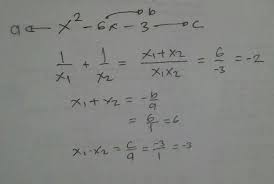 a ← x² - 6x - 3 → c
b
1/x₁ + 1/x₂ = x₁+x₂/x₁x₂ = 6/-3 = -2
x₁+x₂ = -b/a
= 6/1 = 6
x₁-x₂ = c/a = -3/1 = -3